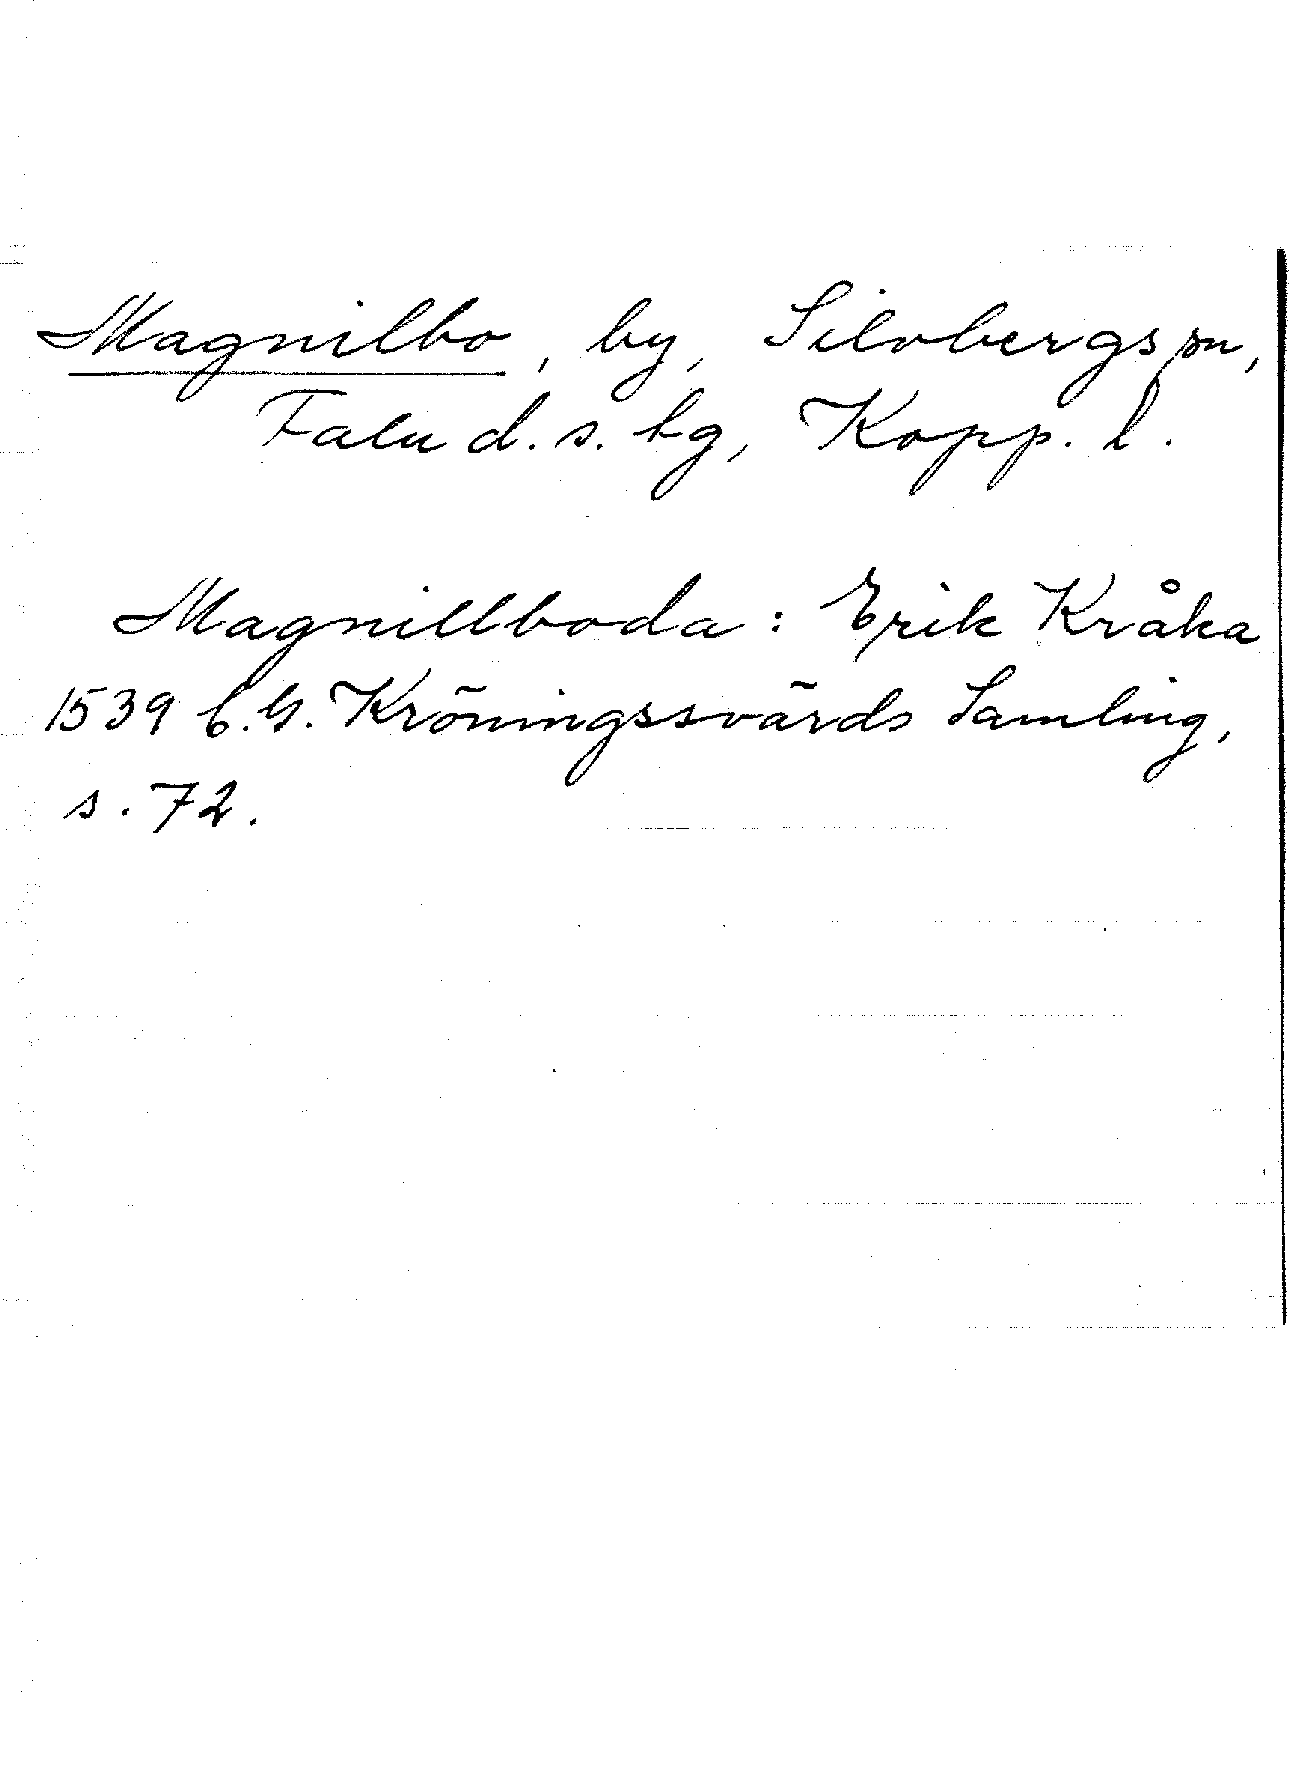 Magnilbo, by, Silvbergs sn,
Falu d. s. lg, Kopp. l.
Magnillboda: Erik Kråka
1539 C.G. Kröningssvärds Samling,
s. 72.